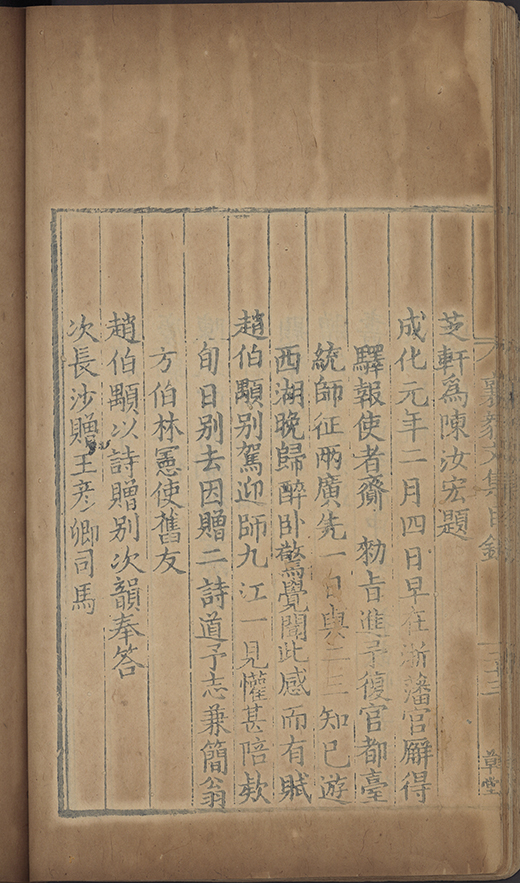 襄毅文集目錄
二十三
草堂
芝軒爲陳汝宏題
成化元年二月四日早在浙藩官廨得
驛報使者齎 勑旨進予復官都臺
統師征兩廣先一日與二三知已遊
西湖晚歸醉卧驚覺聞此感而有賦
趙伯顒别駕迎師九江一見懽甚陪欵
旬日别去因贈二詩道予志兼簡翁
方伯林憲使舊友
趙伯顒以詩贈别次韻奉答
次長沙贈王彦卿司馬